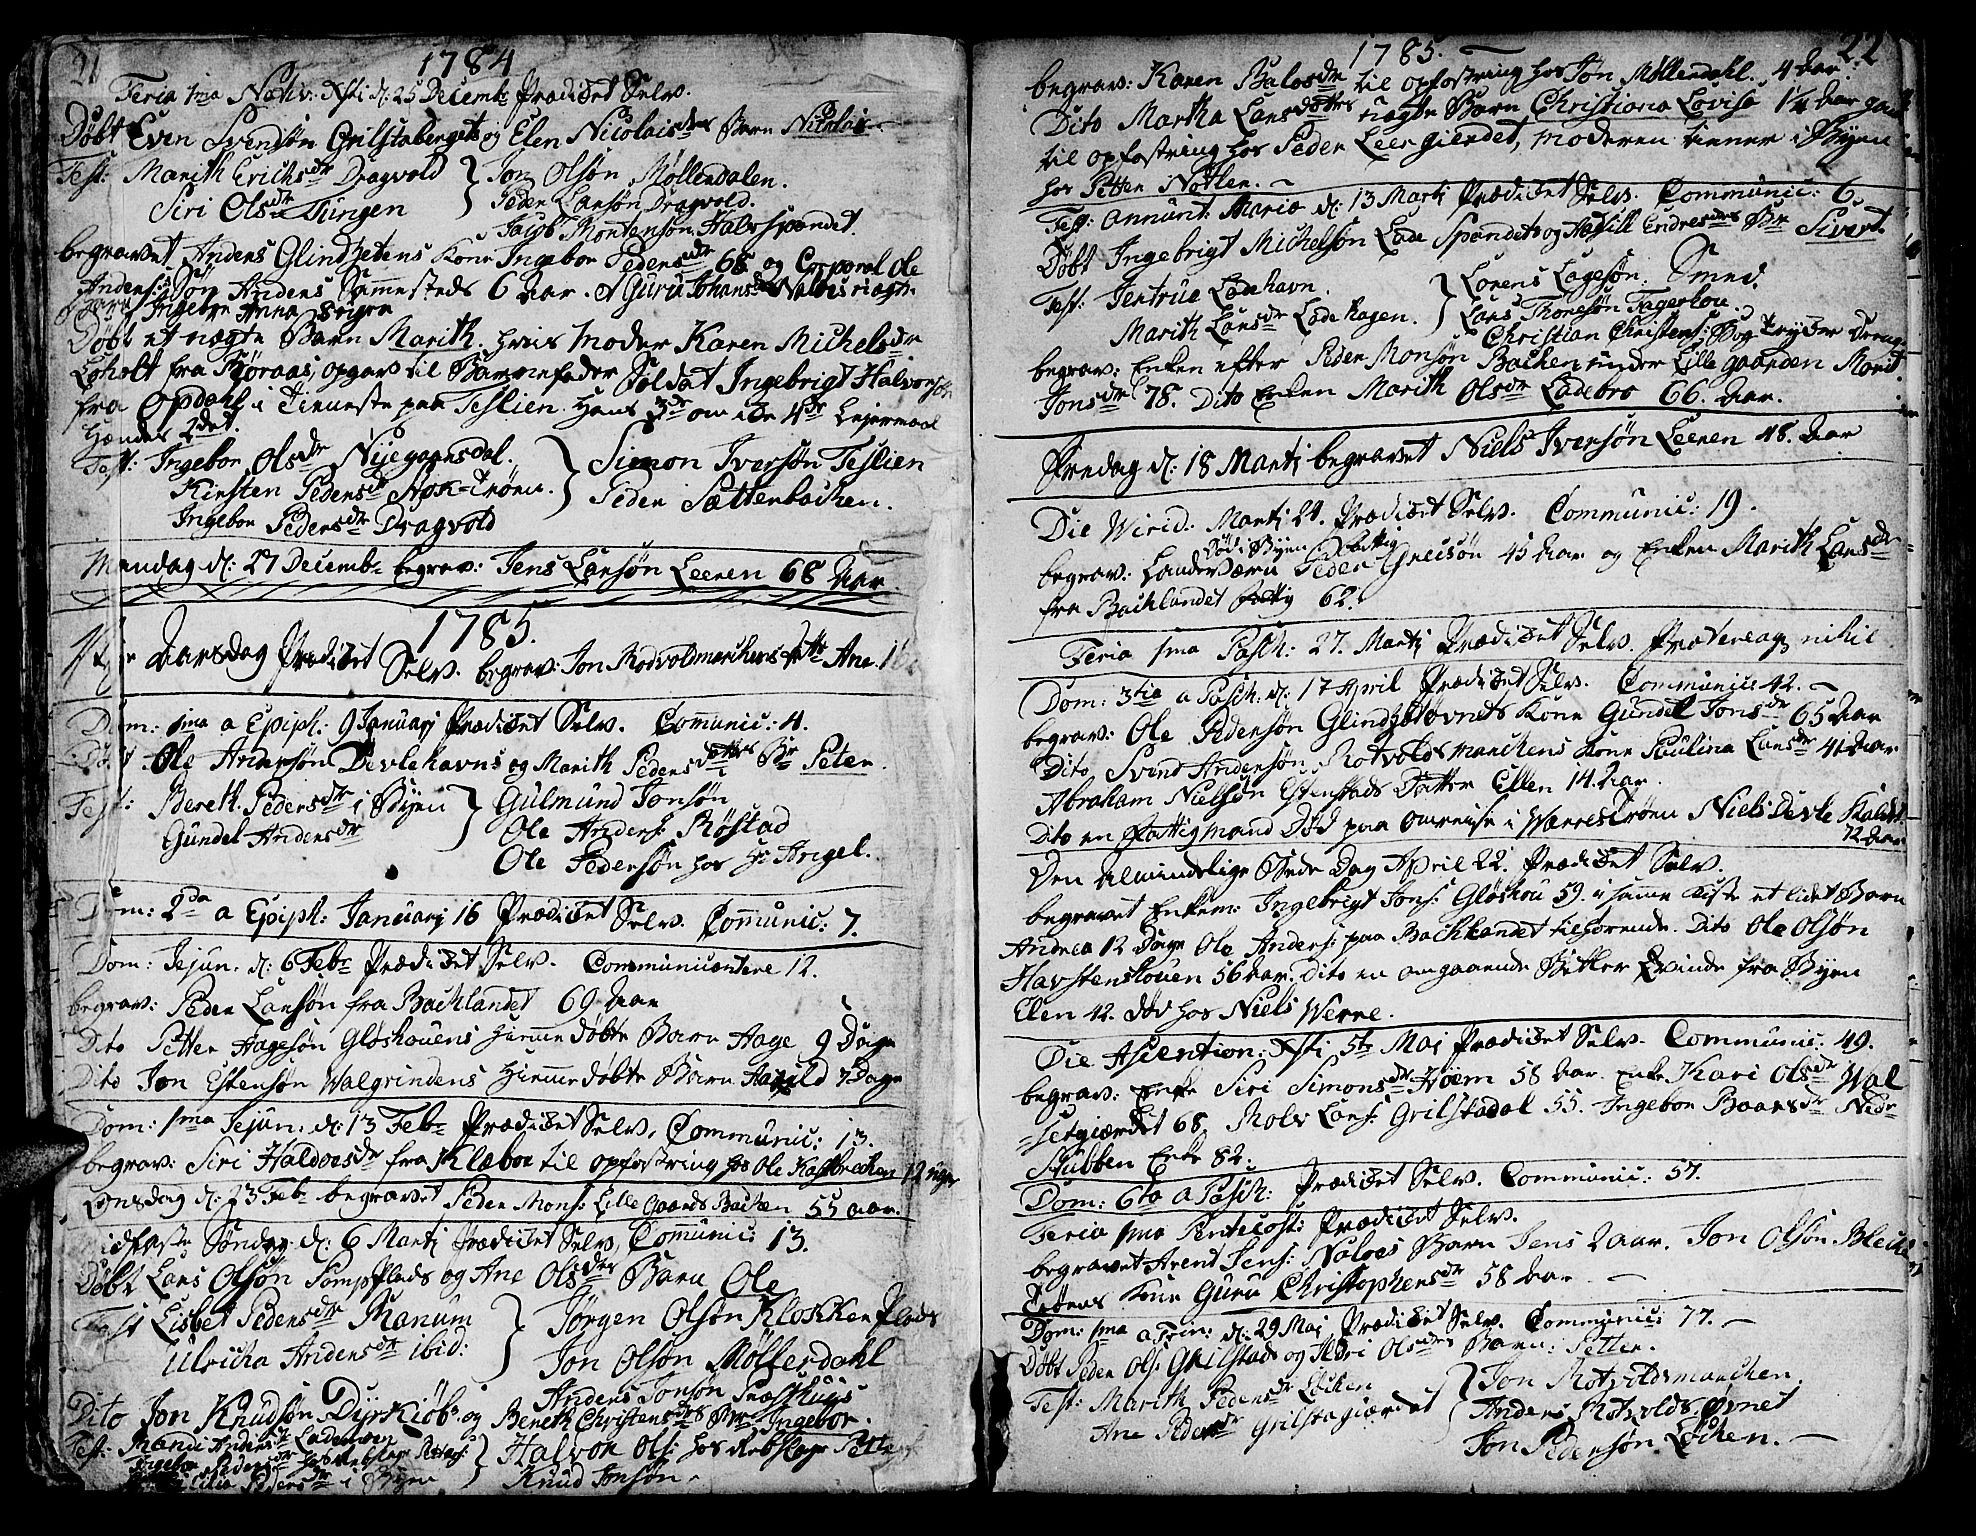 21
1784
Feria 1ma Nativ: Xsti d: 25 Decembr Prædicet Selv.
Døbt Even Svendsøn Grilstabergets og Elen Nicolaisdtrs Barn Nicolai
Test: Marith Erichsdr Dragvold
Siri Olsdr Tungen
Jon Olsøn Møllendalen.
Peder Larsøn Dragvold.
Jacob Mortensøn Halvspandet.
begravet Anders Glindzetens Kone Ingebor Pedersdr 68 og Corporal Ole
Anders: Søn Anders Sammesteds 6 Aar. Guru Johansdr
Ingebor Anna
Døbt et uægte Barn Marith. hvis Moder Karen Michelsdr
fra Røraas, opgav til Barnefader Soldat Ingebrigt Halvorsen
fra Opdahl i Tieneste paa Teslien. Hans 3de om ide 4de Lejermaal
Hændes 2det.
Test: Ingebor Olsdr Nyegaardsdal.
Kirsten Pedersdr
Ingebor Pedersdr Dragvold
Simon Iversøn Teslien
Peder Sætterbachen.
Mandag d: 27 Decembr begrav: Jens Larsøn Leeren 68 Aar
1785.
Nyt Aarsdag Prædicet Selv. begrav: Jon Rodvoldmarchens dtr Ane
Dom: 1ma a Epiph: 9 Januarj Prædicet Selv. Communic: 4.
Døbt Ole Andersøn Devlehavns og Marith Pedersdatters Br Peter.
Test: Bereth Pedersdr i Byen
Gundel Andersdr
Gulmund Jonsøn
Ole Anders: Røstad
Ole Pedersøn hos Hr Angel.
Dom: 2da a Epiph: Januarj 16 Prædicet Selv. Communic: 7.
Dom: Jejun. d: 6 Febr Prædicet Selv. Communicantere 12.
begrav: Peder Larsøn fra Bachlandet 69 Aar
Dito Petter Hagesøn Gløshouens Hiemmedøbte Barn Hage 9 Dage
Dito Jon Estensøn Valgrindens Hiemmedøbte Barn 7 Dage
Dom: 1ma Jejun. d: 13 Febr Prædicet Selv. Communic: 13.
begrav: Siri Haldorsdr fra Klæboe til opfostring hos Ole 12 uger
Onsdag d: 23 Febr begravet Peder Mons: Lille Gaards Bachen 55 aar.
Midfaste Søndag d: 6 Martj Prædicet Selv. Communic: 13.
Døbt Lars Olsøn Pladds og Ane Olsdtrs Barn Ole
Test Lisbet Pedersdr Ranum
Ulricha Andersdr ibid:
Jørgen Olsøn Klokker Plads
Jon Olsøn Møllerdahl
Anders Jonsøn Præsthuus
Dito Jon Knudsøn og Bereth Christensdtrs Br Ingebor.
Test: Mandi Andersdr
Ingebor Pedersdr
Pedersdr i Byen
Halvor Ols: hos Rebslager Petter
Knud Jonsøn.
1785.
22
begrav: Karen Balsdr til opfostring hos Jon Møllendahl. 4 Aar.
Dito Martha Larsdotters uægte Barn Christiana Lovisa 1¼ Aar
til opfostring hos Peder Leer gierdet, moderen tiener i Byen
hos Petter
Fest: Annunt: Mariæ d: 13 Martj Prædicet Selv. Communic: 6.
Døbt Ingebrigt Michelsøn Lade Spandets og Endresdtrs Br Sivert.
Test: Jertrue Ladehavn.
Marith Larsdr Ladehagen.
Lorens Lagesøn. Smed.
Lars Thoresøn Fagerhou
Christian Christens: Bogtrykker Dreng
begrav: Enken efter Peder Monsøn Bachen under Lille gaarden
Jonsdr 78. Dito Enken Marith Olsdr Ladebro 66. Aar.
Fredag d: 18 Martj begravet Niels Iversøn Leeren 48. Aar
Die Virid. Martj 24. Prædicet Selv. Communic: 19.
Død i Byen fattig
begrav: Landeværn Peder 45 Aar og Enken Marith Larsdr
fra Bachlandet fattig 62.
Feria 1ma Pasch: 27. Martj Prædicet Selv. Prætereaqz nihil
Dom: 3tia a Pasch: d: 17 April Prædicet Selv. Communic: 42.
begrav: Ole Pedersøn Glindzhovnets Kone Gundel Jonsdr 65 Aar
Dito Svend Andersøn Rotvoldsmarchens Kone Paulina Larsdr 41 Aar
Abraham Nielsøn Estenstads Datter Ellen 14. Aar.
Dito en Fattigmand Død paa omreise i Værrestrøen Niels Devle
72 Aar
Den almindelige Bede Dag April 22. Prædicet Selv.
begravet Enkem: Ingebrigt Jons: Gløshou 59. i samme Kiste et lidet Barn
Andrea 12 Dage Ole Anders: paa Bachlandet tilhørende. Dito Ole Olsøn
Havstenshouen 56 Aar. Dito en omgaaende Bitler Qvinde fra Byen
Elen 42. død hos Niels Werre.
Die Ascention: Xsti 5te Maj Prædicet Selv. Communic: 49.
begrav: Enke Siri Simonsdr Høem 58 Aar. Enke Kari Olsdr Val
setgiærdet 68. Rolv Lars: Grilstadal 55. Ingebor Baarsdr Nedr
Stubben Enke 82.
Dom: 6ta a Pasch: Prædicet Selv. Communic: 57.
Feria 1ma Pentecost: Prædicet Selv.
begravet Arent Jens: Barn Jens 2 aar. Jon Olsøn
Kone Guru Christophersdr 58 Aar.
Dom: 1ma a Trin: d: 29 Maj Prædicet Selv. Communic: 77.
Døbt Peder Ols: Grilstads og Olsdtrs Barn: Petter.
Test: Marith Pedersdr Løchen
Ane Pedersdr Grilstagiærdet
Jon Rotvoldsmarchen.
Anders Rotvolds Øvnet
Jon Pedersøn Løchen.